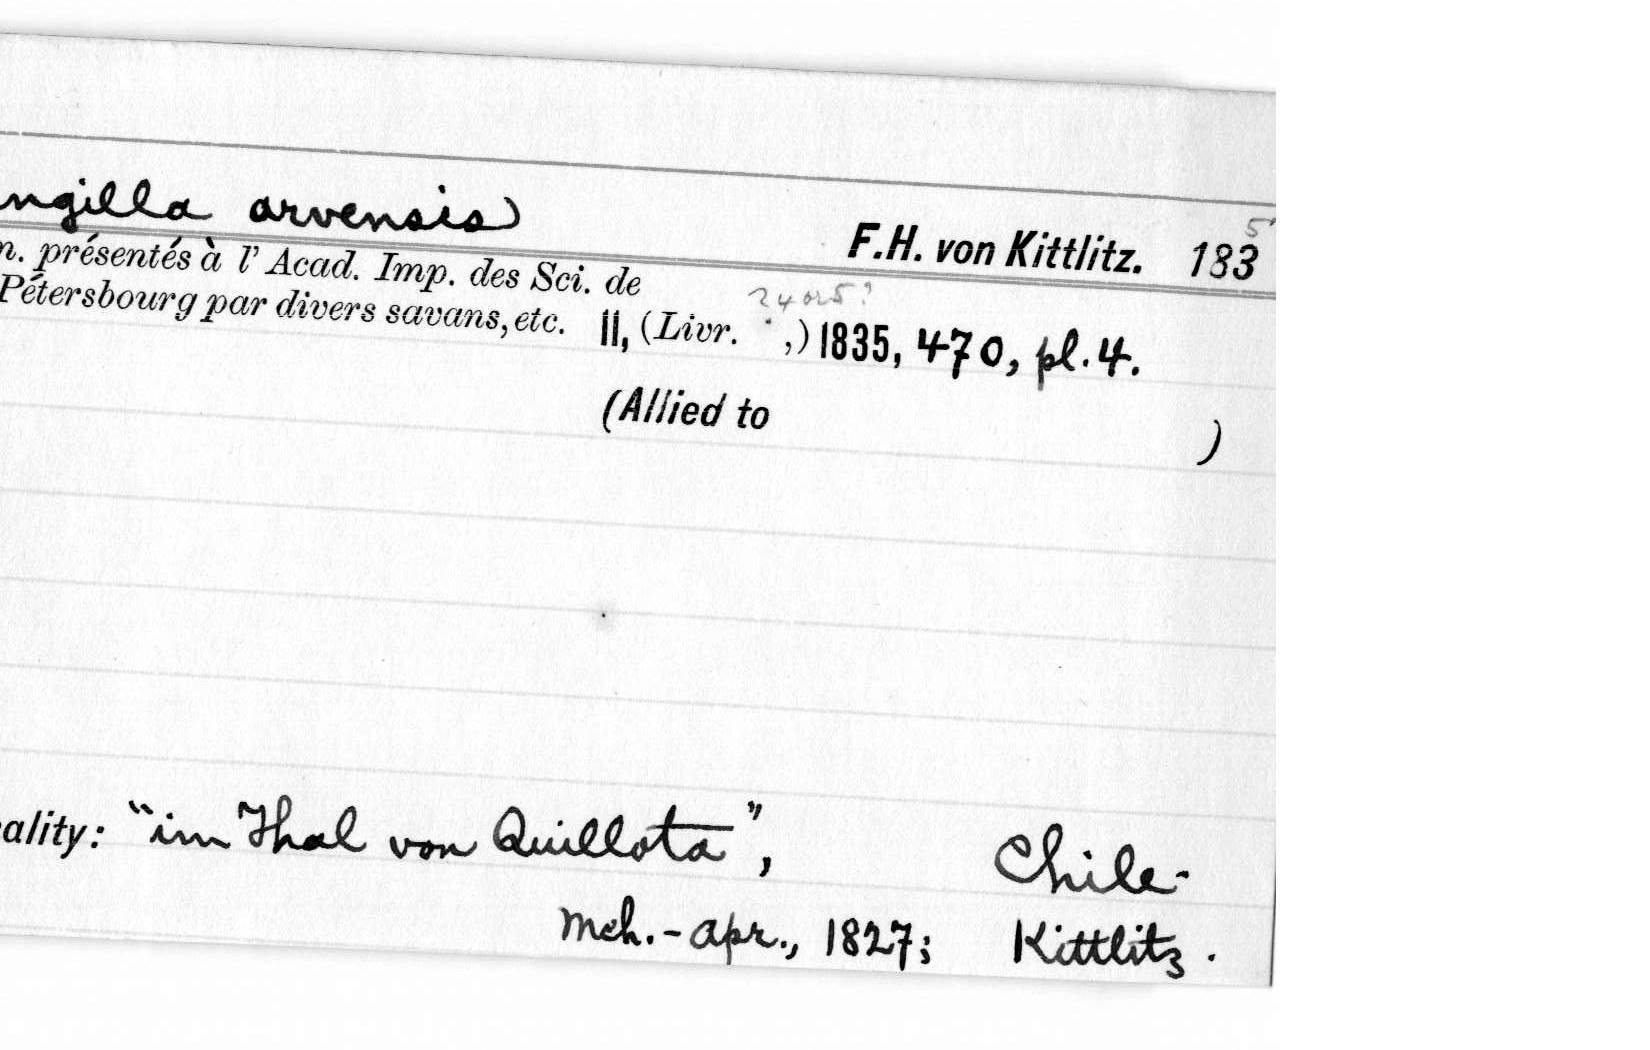 ngilla arvensis
F.H. von Kittlitz. 183
5
n. présentés à l' Acad. Imp. des Sci. de
Pétersbourg par divers savans, etc. II, (Livr. ,) 1835, 470, pl. 4.
2 4 or 5?
(Allied to )
ality: "im Thal von Quillota", Chile-
Mch.-Apr., 1827; Kittlitz.